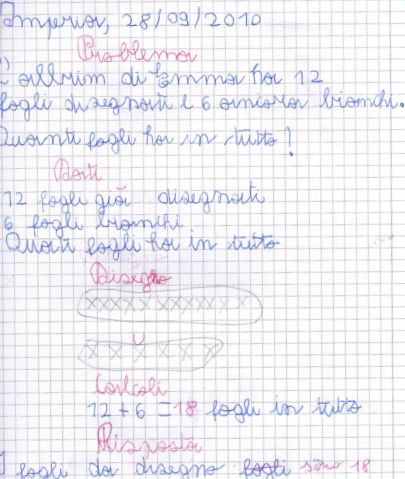 Imperia, 28/09/2010
Problema
L'album di Emma ha 12
fogli disegnati e 6 ancora bianchi.
Quanti fogli ha in tutto?
Dati
12 fogli già disegnati
6 fogli bianchi
Quati fogli ha in tutto
Disegno
XXXXXXXXXXXX
U
XXXXXX
Calcoli
12 + 6 = 18 fogli in tutto
Risposta
I fogli da disegno fogli sono 18